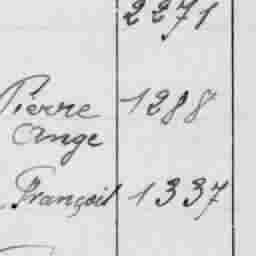 2271
Pierre 1288
Ange
François 1337